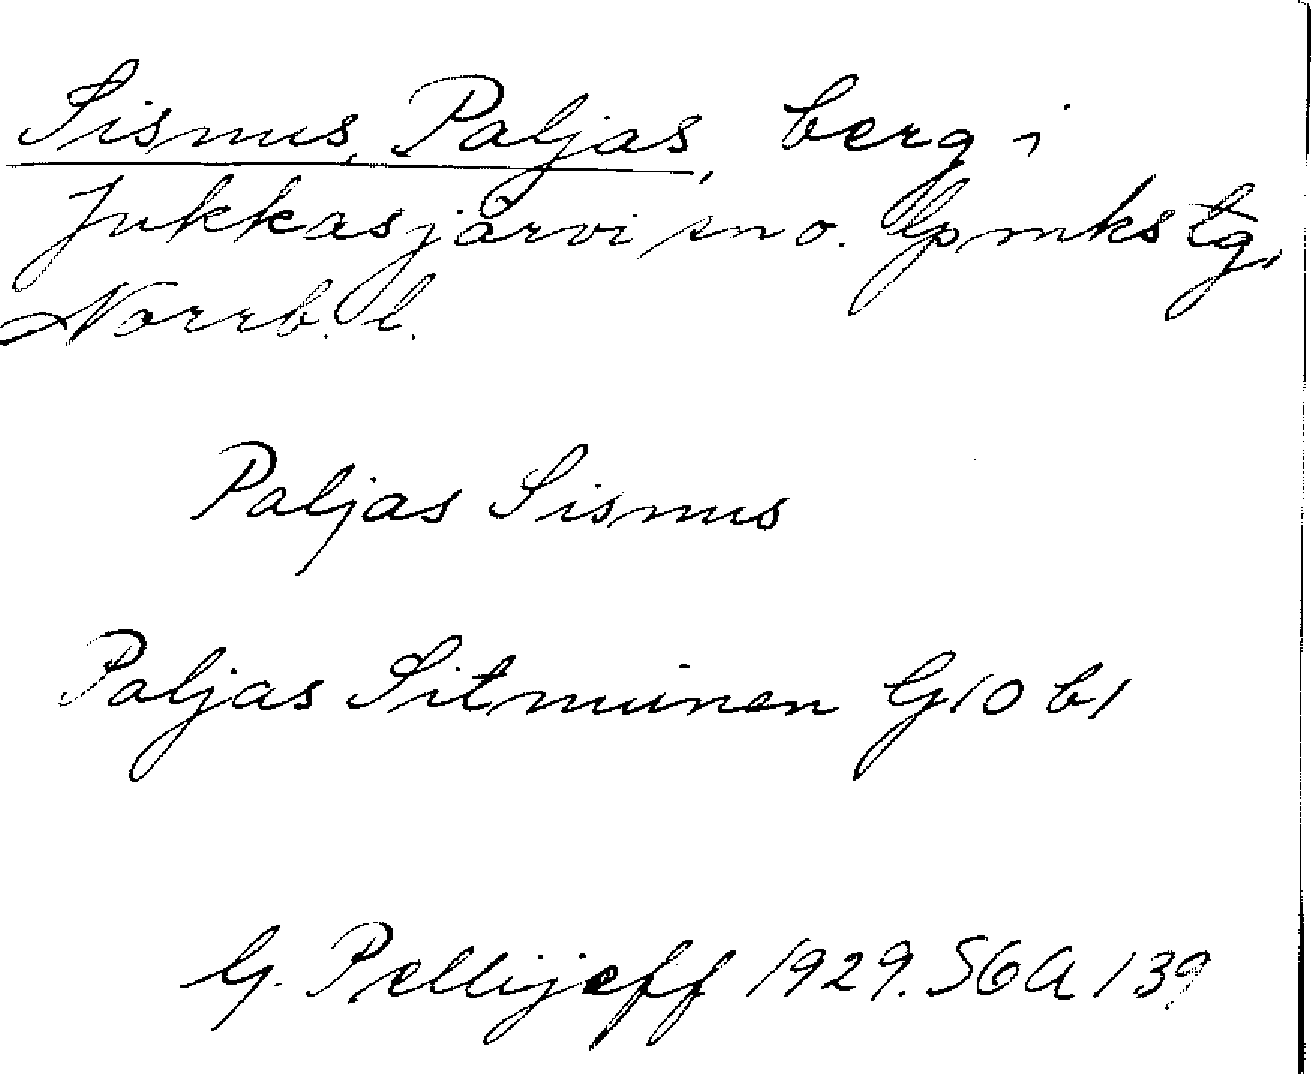 Sismus, Paljas, berg i
Jukkasjärvi sno. Lpmkstg,
Norrb. l.
Paljas Sismus
Paljas Sitmunen G10 b1
G. Pellijeff 1929. S6A 139